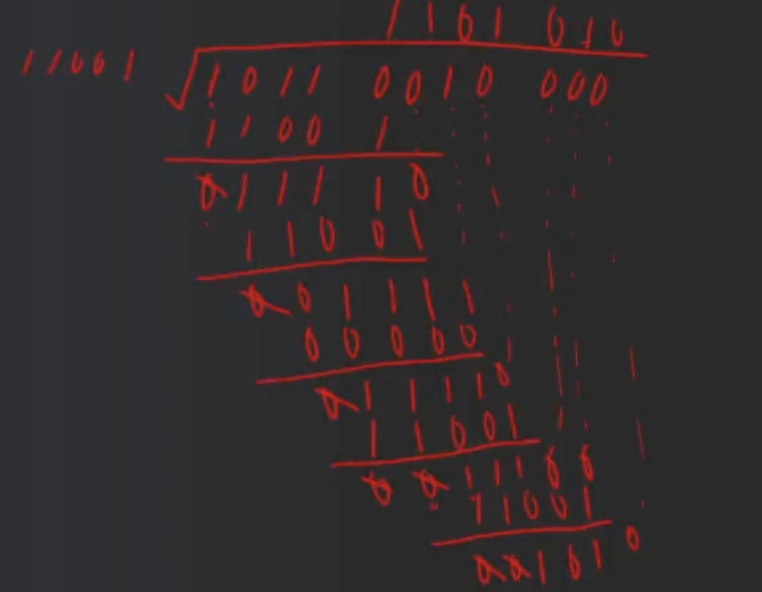 1101 010
11001 √1011 0010 000
1100 1
0111 10
110 01
001 111
00000
011110
11001
0011100
11001
001010